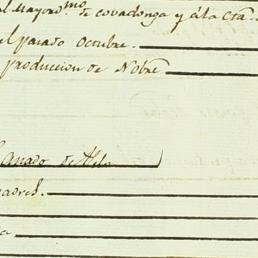 al Mayord.mo de covadonga y a la Cra.
el pasado octubre.
produccion de Nobre
Ganado de Hdo
padres.
a